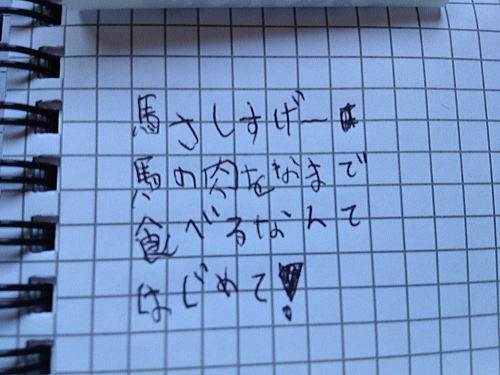 馬さしすげー
馬の肉をなまで
食べるなんて
はじめて!